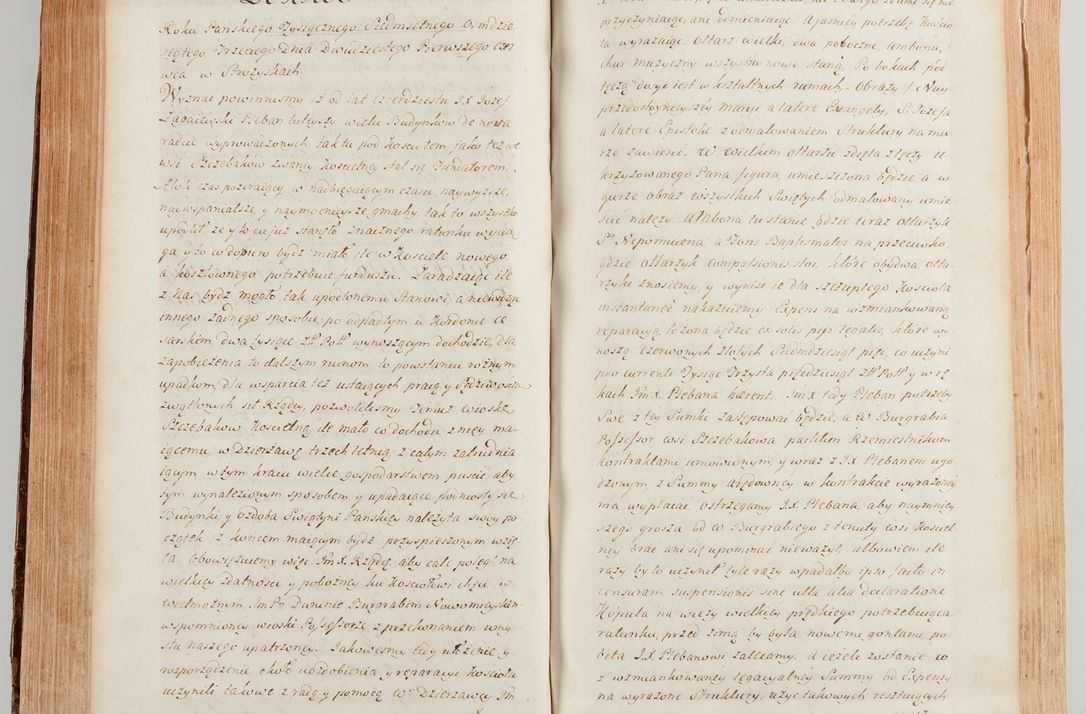 Roku Panskiego Tysiącznego Siedmsetnego Osmdzie-
siątego Trzeciego Dnia Dwudziestego Pierwszego czer-
wca w Strożyskach.
Wyznac powinnismy iż od lat czterdziestu J.X. Jozef
Pleban tuteyszy wielu Budynkow de nova
radice wyprowadzonych tak tu pod Kosciołem, jako też we
wsi Szczebakow zwaney Koscielną stał się Fundatorem.
Ale czas pozeraiący, w nadbiegaiącym czasie naywyższe,
naywspanialsze y naymocnieysze gmachy, tak to wszystko
upodlił, że y to cu już stanęło znacznego ratunku wycią-
ga y to co dopiero bydź miało, ile w Kosciele nowego,
a kosztownego potrzebuie funduszu. Zaradzaiąc ile
z Nas bydź mogło tak upodlonemu Stanowi, a niewidząc
innego żadnego sposobu, po odpadłym w Kordonie ce-
sarskim dwa tysiące Złł Poll wynoszącym dochodzie, dla
zapobieżenia to dalszym ruinom, to powstaniu roznym
upadkom, dla wsparcia też ustaiących pracą y Sędziwoscią
zwątlonych sił Rządcy, pozwolilismy Jemuż wioskę
Szczebakow Koscielną, ile mało co dochodu z niey ma-
iącemu, w Dzierżawę trzech letnią z całym zatrudnia-
iącym w tym kraiu wielce gospodarstwem puscić, aby
tym wynalezionym sposobem y upadaiące podnosły się
Budynki y ozdoba Swiątyni Panskiey należyta swoy po-
czątek z koncem maiącym bydź przyspieszonym wzię-
ła. Obowięzuiemy więc Jm X. Rządcę, aby cale polegał na
wielkiey zdatnosci y pobożney ku Kosciołowi chęci w
wielmożnym Jm P. Duninie Burgrabim Nowomieyskim
wspomnioney wioski Possessorze, z przekonaniem umy-
słu naszego upatrzoney. Jakowesmy tedy ułożenie, y
rozporządzenie około uozdobienia, y reparacyi Kosciola
uczynili takowe z radą y pomocą Dzierżawcy Jm
przyczyniaiąc, ani odmieniaiąc. A jasniey potrzebę Koscio-
ła wyrażaiąc. Ołtarz wielki, dwa poboczne, ambona,
chor muzyczny wszystko nowe staną. Po bokach pod
tęczą dosyć jest w kształtnych ramach Obrazy / Nay-
przedostoynieyszey Maryi a latere Evangely, S. Jozefa
a latere Epistolæ / z odmalowaniem Struktury na mu-
rze zawiesić. W wielkim ołtarzu zdięta z tęczy u-
krzyżowanego Pana figura umieszczona będzie, a w
gurze obraz wszystkich Swiętych odmalowany umie-
scić należy. Ambona tu stanie gdzie teraz ołtarzyk
S. Nepomucena, a Fons Baptismalis na przeciwko,
gdzie ołtarzyk Compassionis stoi, które obydwa ołta-
rzyki znosiemy, y wynieść ie dla szczupłego Kosciola
instantanee nakazuiemy. Expens na wzmiankowaną
reparacyą łożona będzie ex solis pijs legatis, które wy-
noszą czerwonych złotych Siedmdziesiąt pięć, co uczyni
pro currente Tysiąc Trzysta pięćdziesiąt Złł Poll y w rę-
kach Jm X. Plebana hærent. Jm X. tedy Pleban potrzeby
Swe z tey Summy zastępować będzie, a W Burgrabia
Possessor wsi Szczebakowa partim Rzemiesnikom
kontraktami umowionym, y wraz z J.X. Plebanem ugo-
dzonym, z Summy arędowney w kontrakcie wyrażoney
ma wypłacić. Ostrzegamy J.X. Plebana aby naymniey-
szego grosza od W. Burgrabiego z tenuty wsi Kosciel-
ney brać ani się upominać nieważył, albowiem ile
razy by to uczynił tyle razy wpadałby ipso facto in
censuram suspensionis sine ulla alia declaratione.
Kopuła na wieży wielkiey prędkiego potrzebuiąca
ratunku, przed zimą by była nowemi gontami po-
bita J.X. Plebanowi zalecamy. A jeżeli zostanie co
z wzmiankowanty legacyalney Summy od Expensy
na wyrażone Struktury, użyć takowych resztuiących